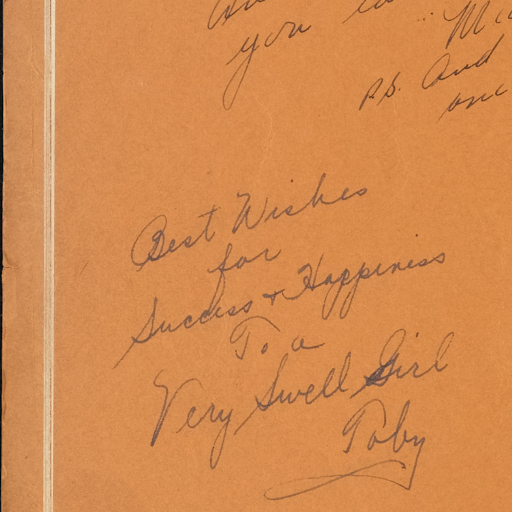 you
P.S. And
one
Best Wishes
for
Success + Happiness
To a
Very Swell Girl
Toby